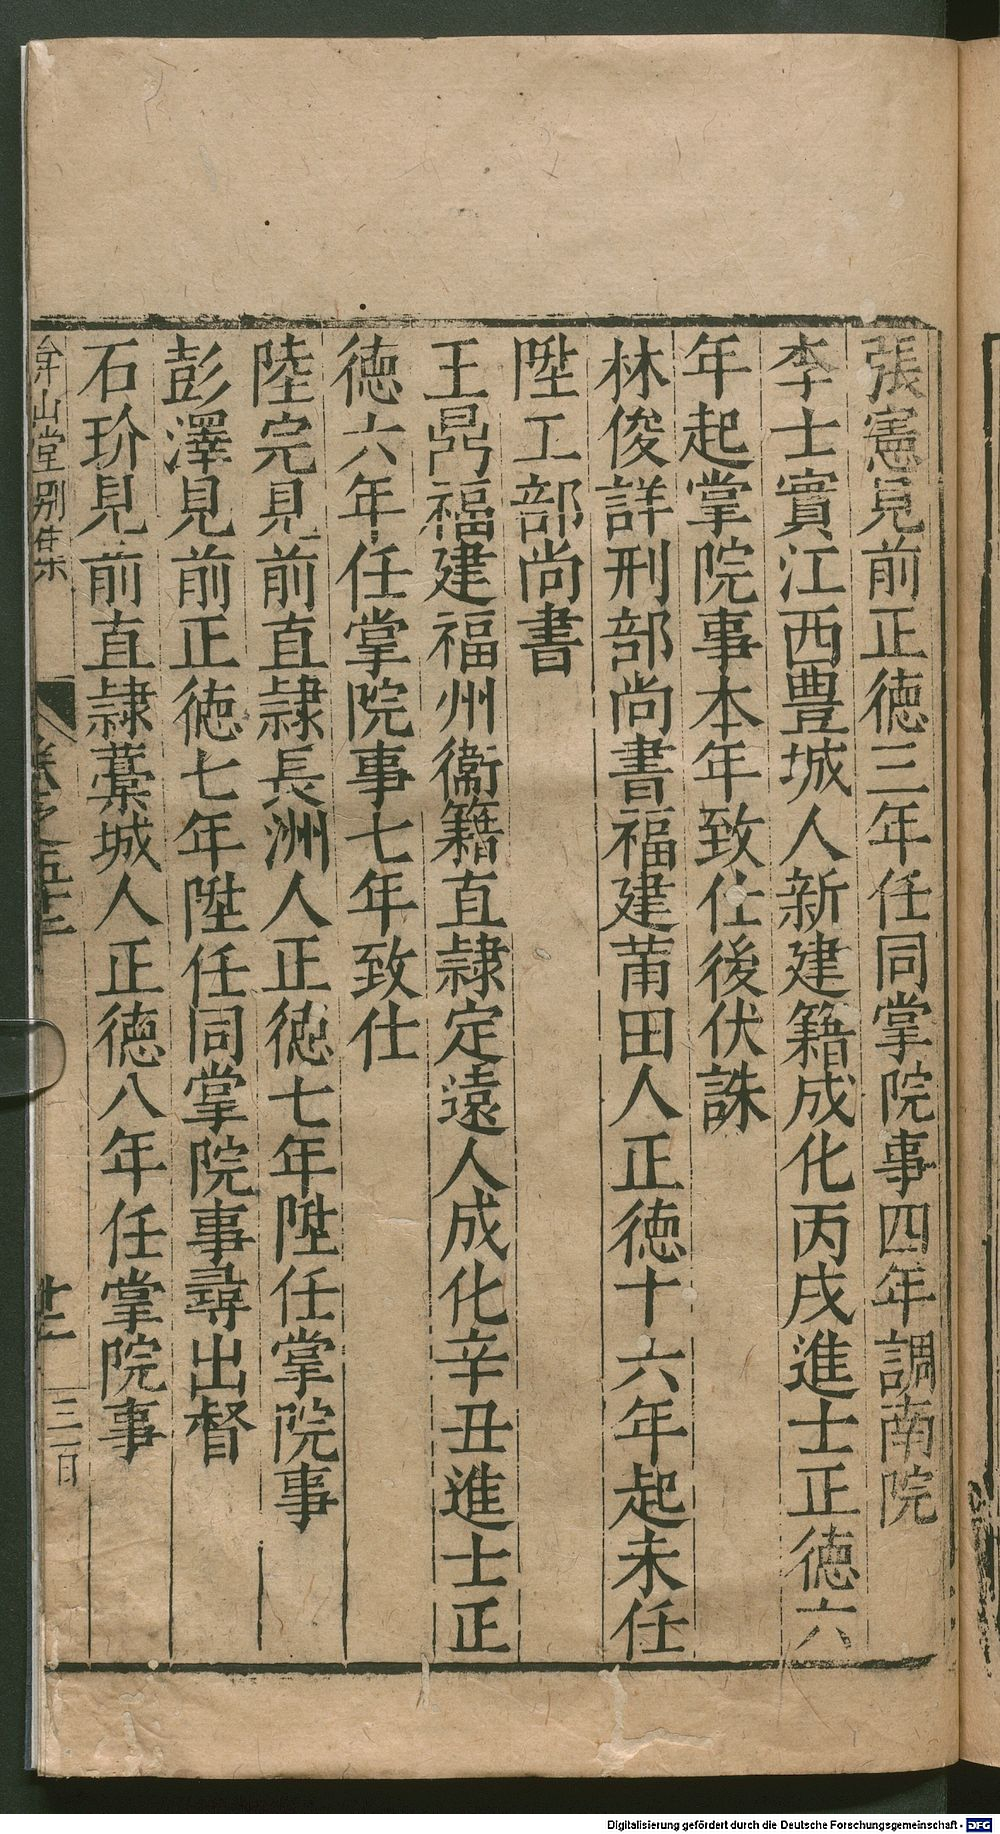 張憲見前正德三年任同掌院事四年調南院
李士實江西豊城人新建籍成化丙戌進士正德六
年起掌院事本年致仕後伏誅
林俊詳刑部尚書福建莆田人正德十六年起未任
陞工部尚書
王鼎福建福州衞籍直隷定遠人成化辛丑進士正
德六年任掌院事七年致仕
陸完見前直隷長洲人正德七年陞任掌院事
彭澤見前正德七年陞任同掌院事尋出督
石玠見前直隷藁城人正德八年任掌院事
弇山堂別集
卷之五十三
廿二
Digitalisierung gefördert durch die Deutsche Forschungsgemeinschaft - DFG